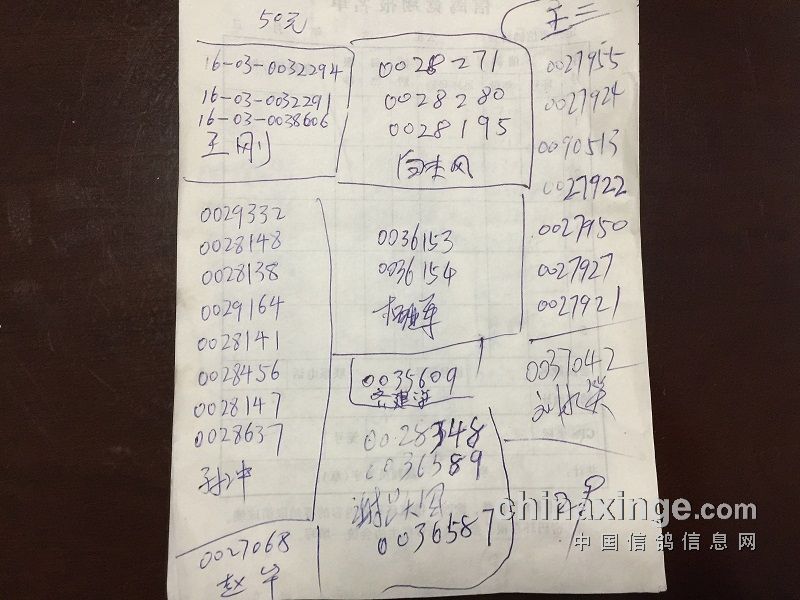 50元
16-03-0032294
16-03-0032291
16-03-0038606
王刚
0028271
0028280
0028195
王三
0027955
0027924
0090513
0027922
0027950
0027927
0027921
0029332
0028148
0028138
0029164
0028141
0028456
0028147
0028637
孙冲
0036153
0036154
0035609
0037042
0028348
0036589
0036587
0027068
chinaxinge.com
中国信鸽信息网